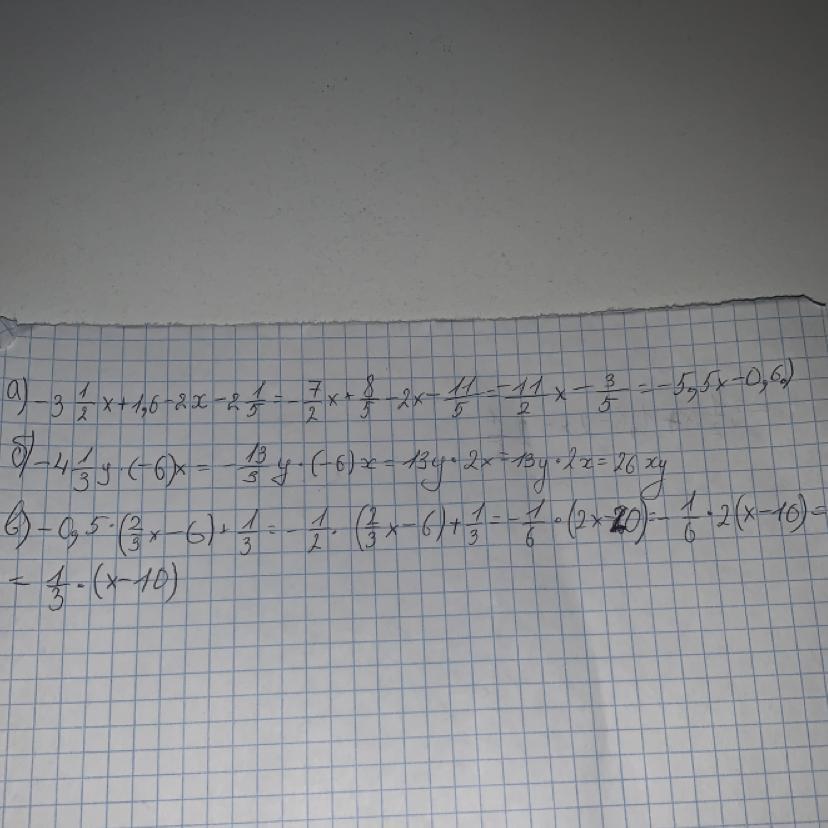 а) -3 1/2 x + 1,6 - 2x - 2 1/5 = -7/2 x + 8/5 - 2x - 11/5 = -11/2 x - 3/5 = -5,5x - 0,6.)
б) -4 1/3 y · (-6)x = -13/3 y · (-6) x = 13y · 2x = 13y · 2x = 26 xy
в) -0,5 · (2/3 x - 6) + 1/3 = -1/2 · (2/3 x - 6) + 1/3 = -1/6 · (2x - 20) = -1/6 · 2(x - 10) =
= 1/3 · (x - 10)